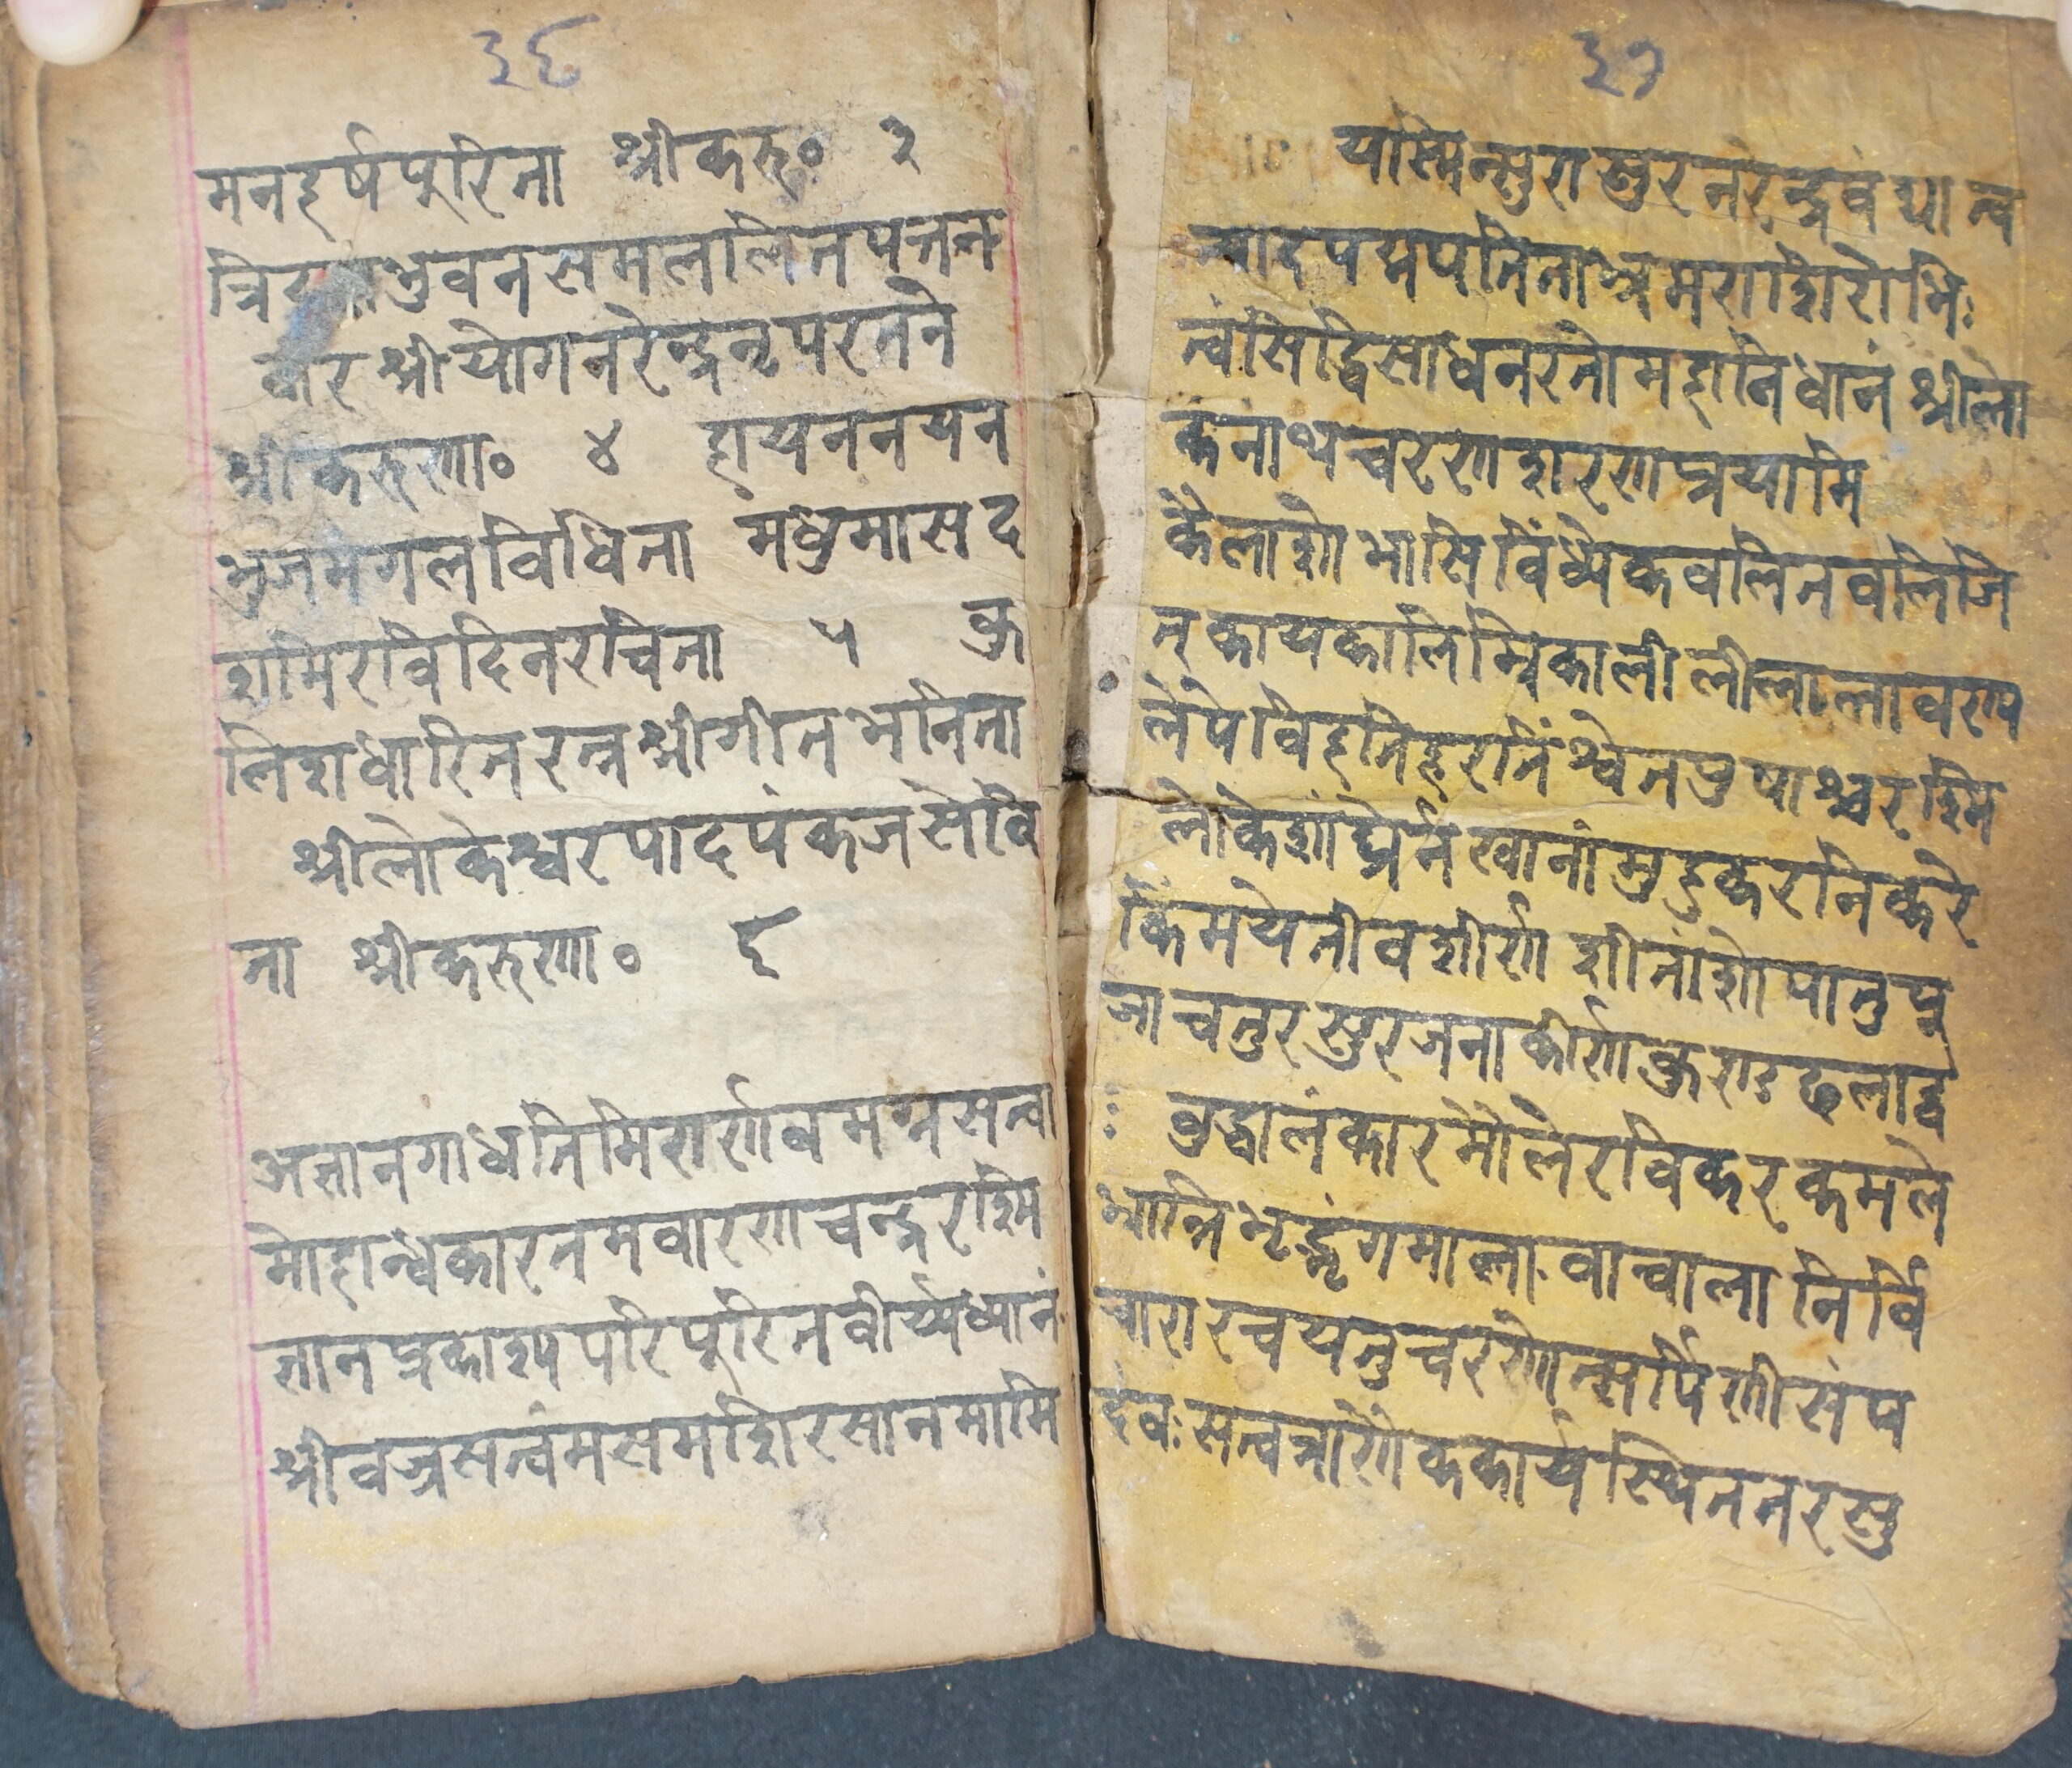 ३६
मनहर्षपुरिता श्रीकरु० ३
भुवनसमललितपत्तन
श्रीयोगनरेन्द्रनृपरतने
श्रीकरुणा० ४ हायननयन
भुजमंगलविधिना मधुमासद
शमिरविदिनरचिता ५ कु
लिशधारितरत्नश्रीगीतभनिता
श्रीलोकेश्वरपादपंकजसेवि
ता श्रीकरुणा० ६
अज्ञानगाधतिमिरार्णवमग्नसत्व
मोहान्धकारतमवारणचन्द्ररश्मि
ज्ञानप्रकाश्यपरिपूरितवीर्य्यध्यानं
श्रीवज्रसत्वंमसमशिरसानमामि
३७
यस्मिन्सुरासुरनरेन्द्रवंद्यात्व
त्पादपद्मपतिताभ्रमराशिरोभिः
त्वंसिद्धिसाधनरतोमहानिधानं श्रीलो
कनाथचरणशरणप्रयामि
कैलाशोभासिविंध्यैकवलितवलिजि
त्कायकालिम्निकालीलीलालावण्य
लेपेविहतिहरतिंश्वेतपुषाश्चरश्मि
लोकेशांघ्रेर्नखानांमुहुकरनिकरे
र्किमयेतीवशीर्णशीतांशोपातुपू
जाचतुरसुरजनाकीर्णकुराडछलाद्व
ः वुद्धालंकारमौलेरविकरकमले
भ्रान्निभृङ्भृंगमालावान्वाला निर्वि
चारारचयतुचरणोत्सर्पिणीसंप
दंवः सत्वत्राणैककार्यस्थितनरसु